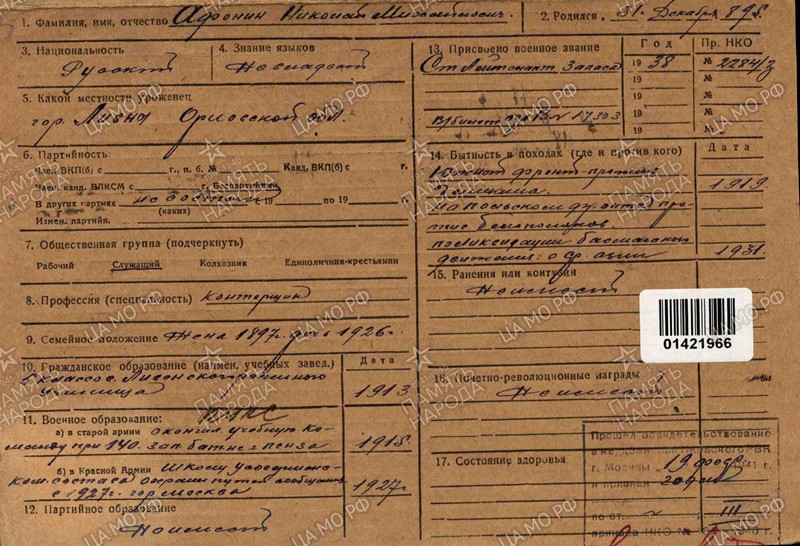 1. Фамилия, имя, отчество Афонин Николай Михайлович.
2. Родился 31. Декабря 895.
3. Национальность
Русский
4. Знание языков
Не владеет
5. Какой местности уроженец
гор. Ливны Орловской обл.
6. Партийность.
Член ВКП(б) с г., п. б. № Канд. ВКП(б) с г.
Член, канд. ВЛКСМ с г. Беспартийный
В других партиях не состоял с 19 по 19 г.
(каких)
Измен. партийн.
7. Общественная группа (подчеркнуть)
Рабочий Служащий Колхозник Единоличник-крестьянин
8. Профессия (специальность) Конторщик
9. Семейное положение Жена 1897г. дочь 1926г.
10. Гражданское образование (наимен. учебных завед.) Дата
класса Ливенского
училища 1913
11. Военное образование:
а) в старой армии окончил учебную ко-
манду при 140. зап. бат-не г. Пенза 1915
б) в Красной Армии Школу
ком. состава охраны путей сообщения
с 1927г. гор Москва 1927г
12. Партийное образование
Не имеет
13. Присвоено военное звание Год Пр. НКО
Ст. Лейтенант Запаса 1938 № 2284/з
19 №
19 №
В/билет № 17303 19 №
14. Бытность в походах (где и против кого) Дата
Южный фронт против
Деникина. 1919
На Польском фронте про-
тив белополяков.
по ликвидации басмаческого
движения: в Ср. Азии 1931.
15. Ранения или контузии
Не имеет
01421966
16. Почетно-революционные награды
Не имеет
17. Состояние здоровья
Прошел освидетельствование
г. Москвы 19 февр. 1941 г.
и признан годен
по ст. III
приказа НКО №
ЦАМО.РФ
ПАМЯТЬ НАРОДА